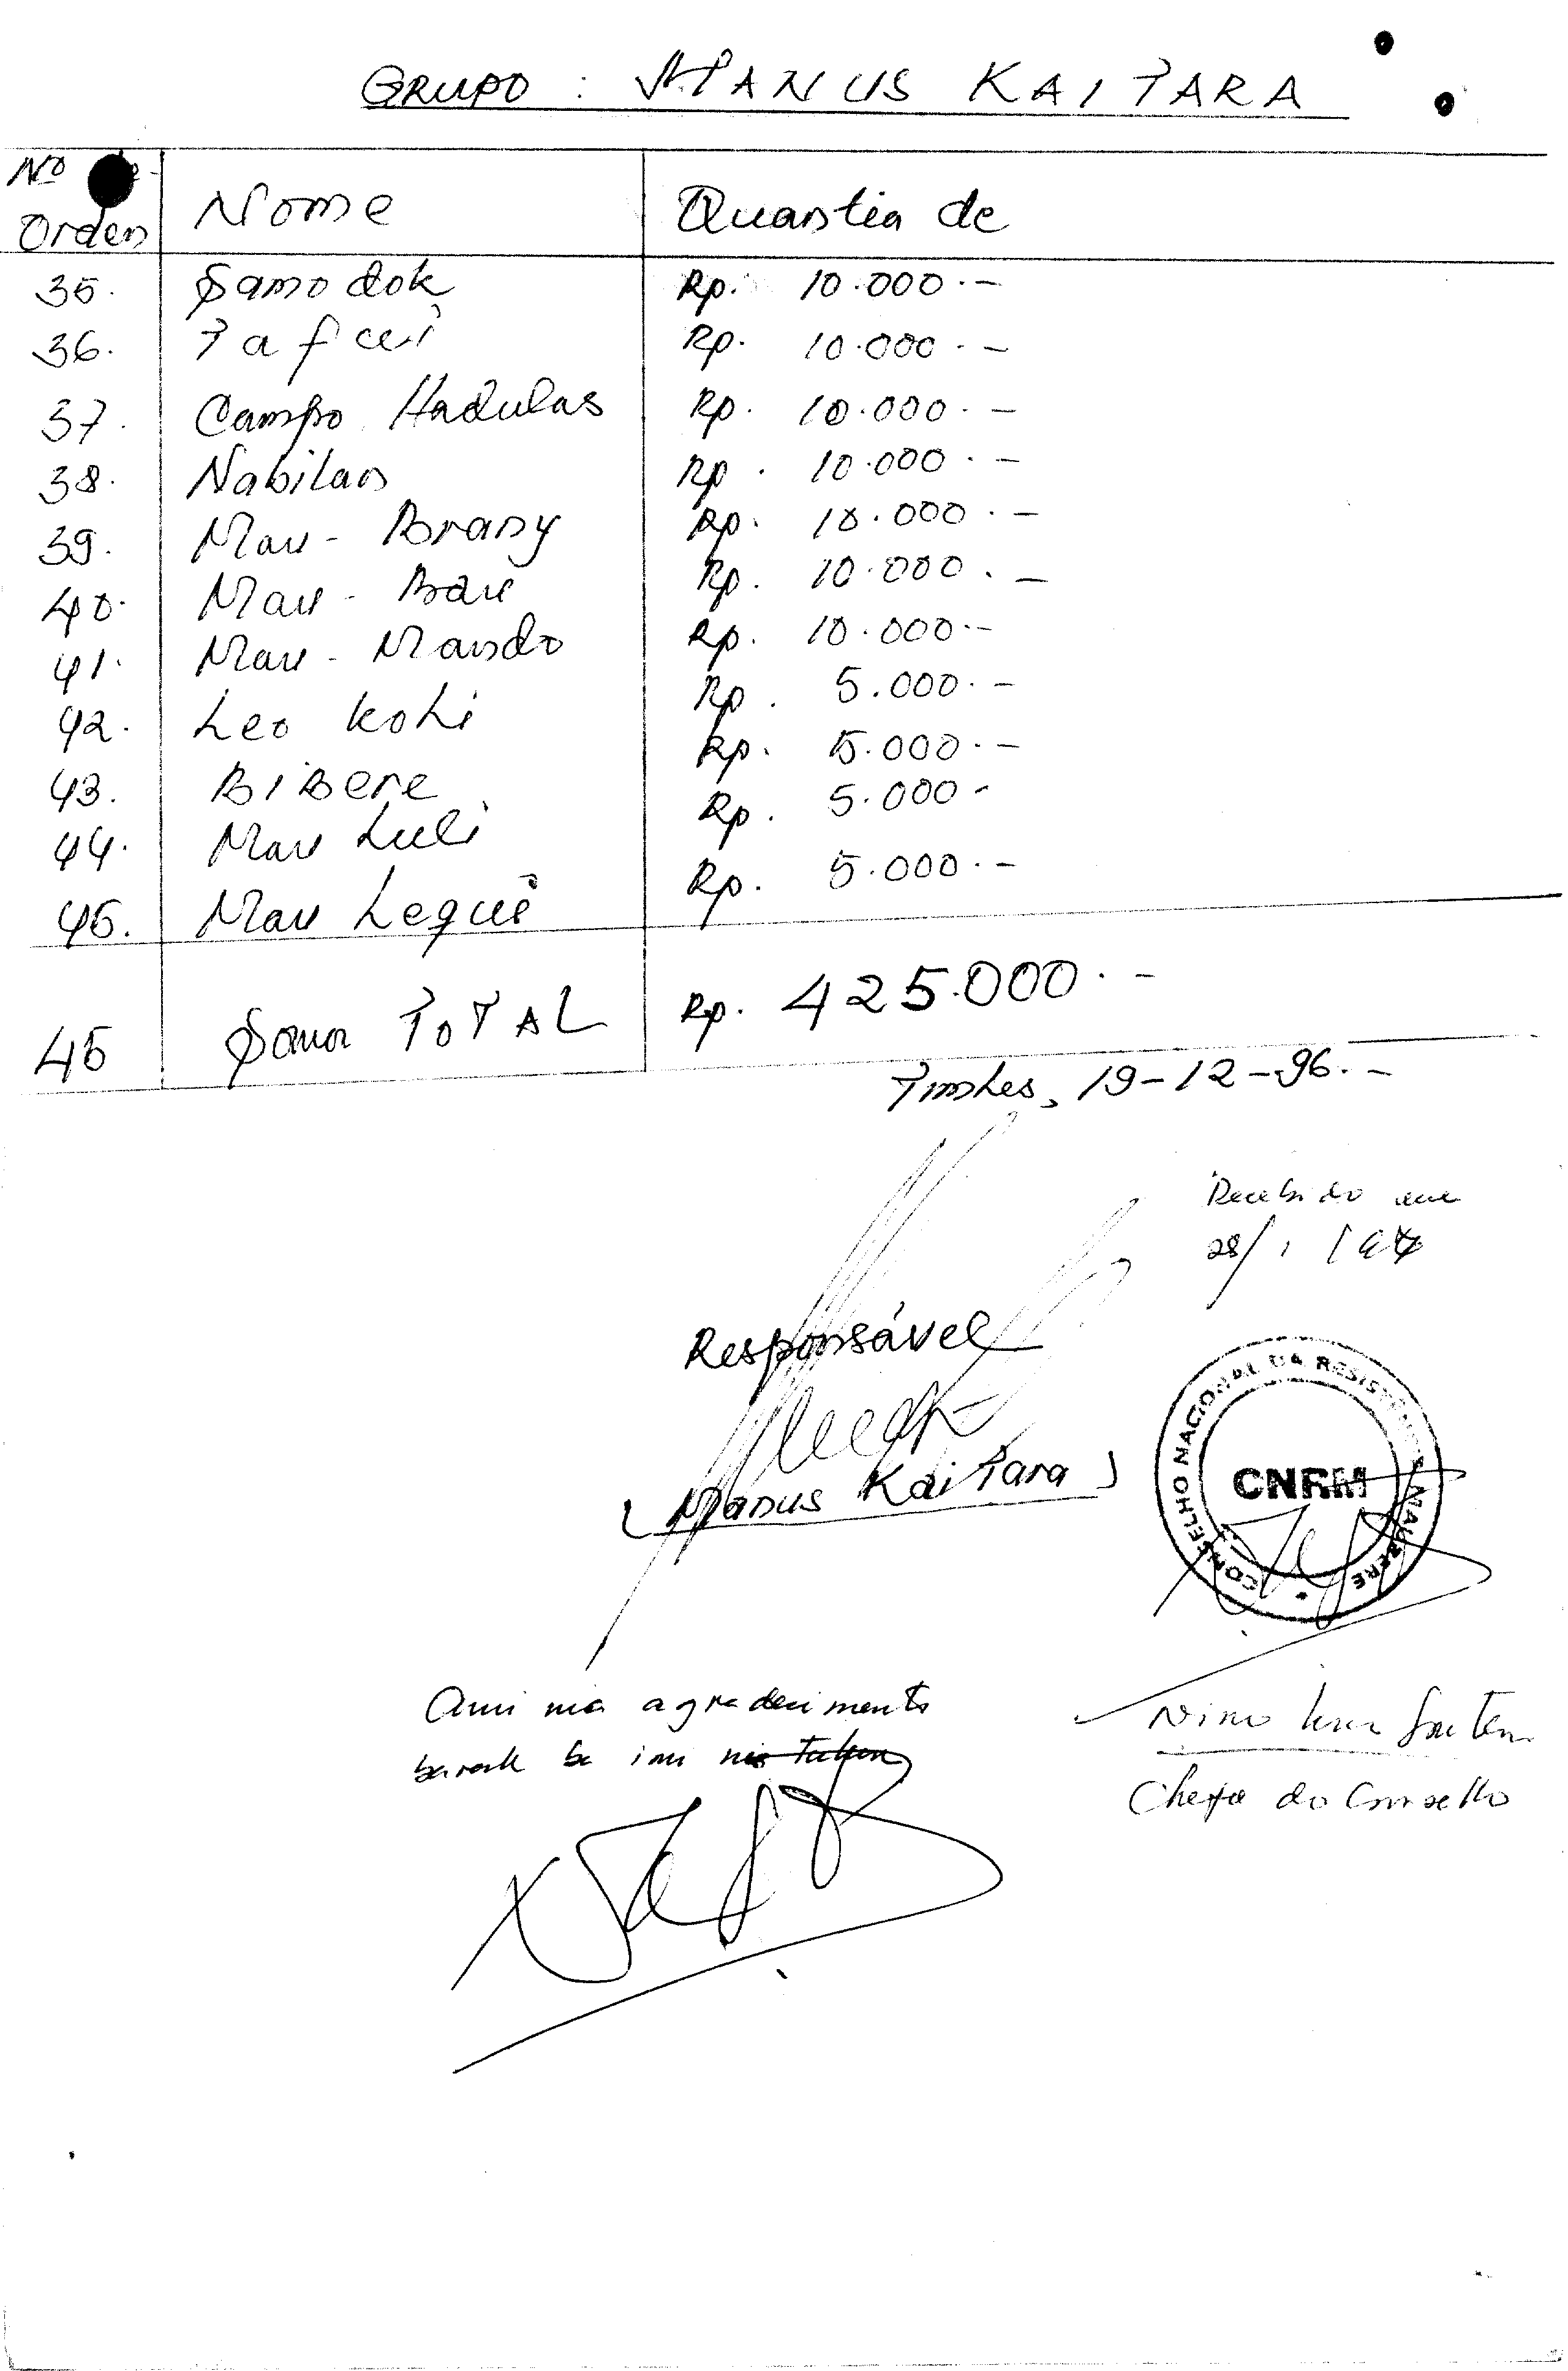 GRUPO : MANUS KAITARA
No de Orden Nome Quantia de
35. Samodok Rp. 10.000.-
36. Rp. 10.000.-
37. Campo Hadulas Rp. 10.000.-
38. Nabilan Rp. 10.000.-
39. Mau - Brany Rp. 10.000.-
40. Mau - Bau Rp. 10.000.-
41. Mau - Mando Rp. 10.000.-
42. Leo Koli Rp. 5.000.-
43. BiBere Rp. 5.000.-
44. Mau Luli Rp. 5.000-
45. Mau Lequi Rp. 5.000.-
45 Soma TOTAL Rp. 425.000.-
19-12-96.-
Recebido em
28/1/97
Responsável
(Manus KaiTara)
CONSELHO NACIONAL DA RESISTÊNCIA MAUBERE
CNRM
Ami nia agradecimento
barak ba imi
Nino
Chefe do Conselho